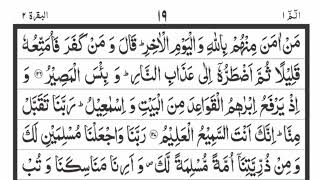 الٓمّٓ ١ ١٩ البقرة ٢
مَنْ اٰمَنَ مِنْهُمْ بِاللّٰهِ وَالْيَوْمِ الْاٰخِرِ ؕ قَالَ وَ مَنْ كَفَرَ فَاُمَتِّعُهٗ
قَلِيْلًا ثُمَّ اَضْطَرُّهٗۤ اِلٰى عَذَابِ النَّارِ ؕ وَ بِئْسَ الْمَصِيْرُ ﴿۱۲۶﴾ وَ
اِذْ يَرْفَعُ اِبْرٰهٖمُ الْقَوَاعِدَ مِنَ الْبَيْتِ وَ اِسْمٰعِيْلُ ؕ رَبَّنَا تَقَبَّلْ
مِنَّا ؕ اِنَّكَ اَنْتَ السَّمِيْعُ الْعَلِيْمُ ﴿۱۲۷﴾ رَبَّنَا وَاجْعَلْنَا مُسْلِمَيْنِ لَكَ
وَ مِنْ ذُرِّيَّتِنَاۤ اُمَّةً مُّسْلِمَةً لَّكَ ۪ وَ اَرِنَا مَنَاسِكَنَا وَ تُبْ